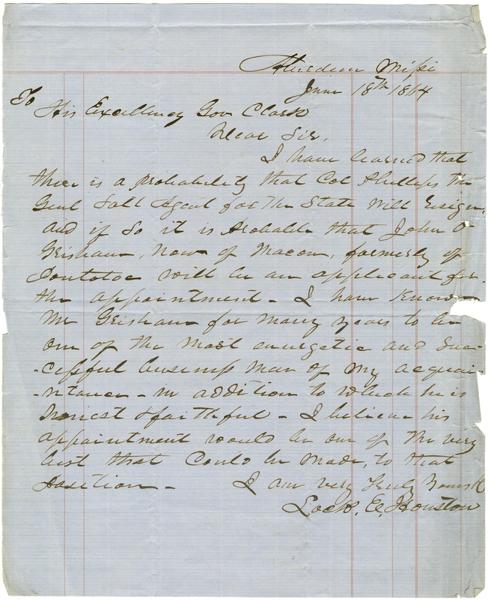 Aberdeen Missi
June 18th 1864
To
His Excellency Gov Clark
Dear Sir,
I have learned that
there is a probability that Col Phillips the
Genl Salt Agent for the State will resign,
and if so it is probable that John
Grisham, now of Macon, formerly of
Pontotoc will be an applicant for
the appointment - I have known
Mr Grisham for many years to be
one of the most energetic and suc-
-cessful business man of my acquai-
-ntance - in addition to which he is
honest & faithful - I believe his
appointment would be one of the very
best that could be made, to that
position - I am very truly Yours &c
Lock. E. Houston